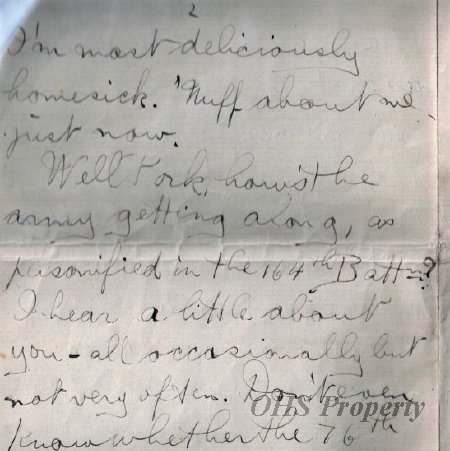 2
I'm most deliciously
homesick. 'Nuff about me
just now.
Well Pork, how's the
army getting along, as
personified in the 164th Battn?
I hear a little about
you-all occasionally but
not very often. Don't even
know whether the 76th
OHS Property